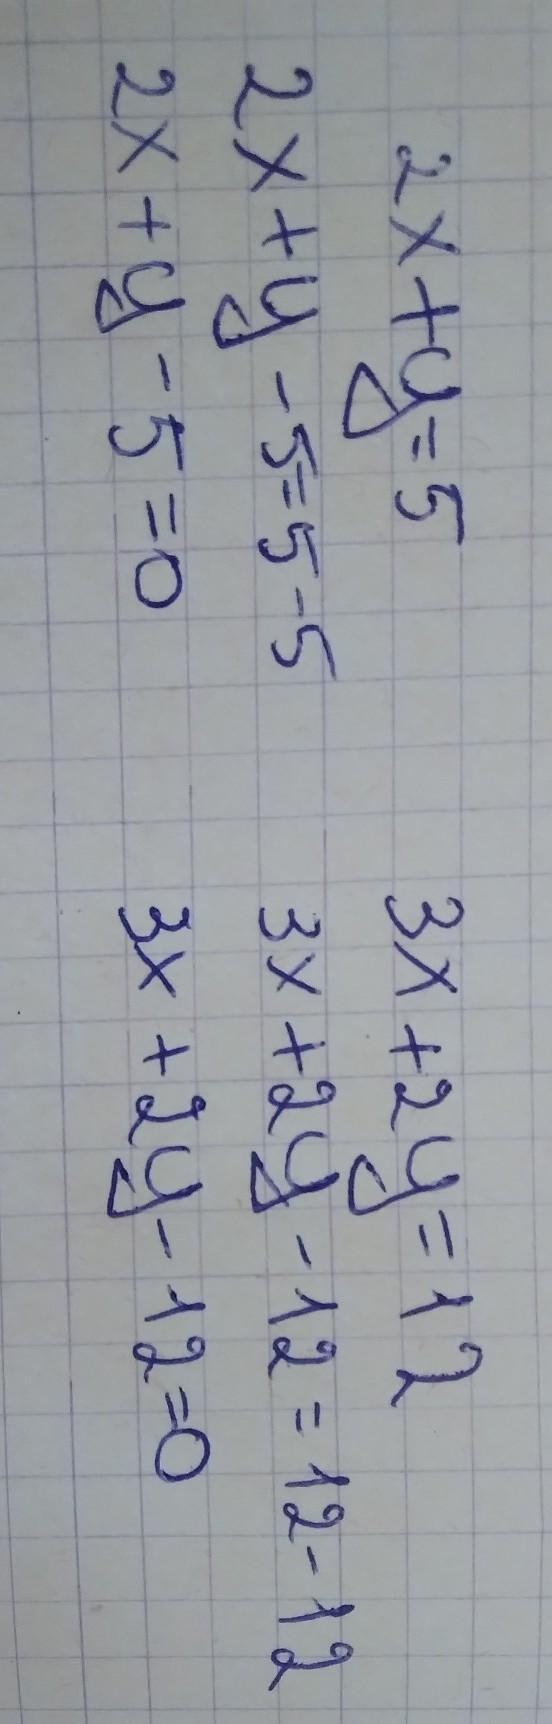 2x+y=5
2x+y-5=5-5
2x+y-5=0
3x+2y=12
3x+2y-12=12-12
3x+2y-12=0